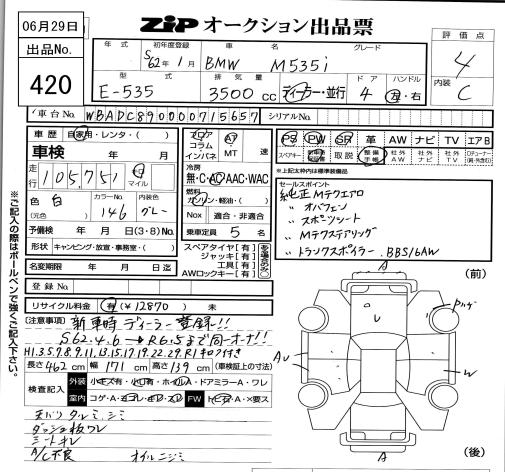 06月29日
ZIP オークション出品票
出品No.
420
年式 初年度登録 車名 グレード
S62年1月 BMW M535i
評価点
4
型式 排気量 ドア ハンドル
E-535 3500cc ディーラー・並行 4 左・右
内装
C
車台No. WBADC890000715657 シリアルNo.
車歴 自家用・レンタ・( )
車検 年 月
走行 105,751 マイル
色 白 カラーNo. 146 内装 グレー
(元色)
予備検 年 月 日(3・8)No.
形状 キャンピング・放倉・事務室・( )
名変期限 年 月 日迄
登録No.
リサイクル料金 有(¥12870) 未
フロア コラム インパネ AT MT 速
冷房
無・C・AC・AAC・WAC
燃料
ガソリン・軽油・( )
Nox 適合・非適合
乗車定員 5 名
スペアタイヤ[有]
ジャッキ[有]
工具[有]
AWロックキー[有]
PS PW SR 革 AW ナビ TV エアB
スペアキー 取説 整備手帳 社外AW 社外ナビ 社外TV
※上記太枠内は標準装備品
セールスポイント
純正Mテクエアロ
〃 オバフェン
〃 スポーツシート
〃 Mテクステアリング
〃 トランクスポイラー、BBS16AW
※ご記入の際はボールペンで強くご記入下さい。
(注意事項) 新車時ディーラー登録!!
S62.4.6→R6.5まで同一オーナー!!
H1.3.5.7.8.9.11.13.15.17.19.22.29.R1キロク付き
長さ462cm 幅171cm 高さ139cm (車検証上の寸法)
検査記入 外装 小キズ有・小凹有・ホイルA・ドアミラーA・ワレ
室内 コゲ・A・ヨゴレ・キレ・スレ FW トビ石・A・×要ス
天バリタルミ、シミ
ダッシュ板ワレ
シートキレ
A/C不良 オイルニジミ
(前)
A
U
Pハゲ
AU
W
A
(後)